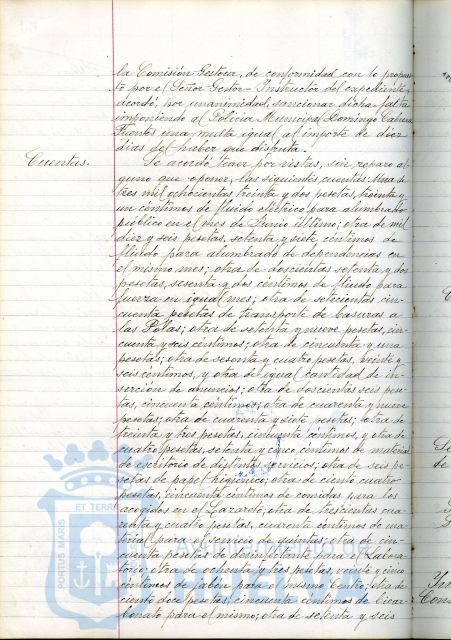 la Comisión Gestora, de conformidad con lo propues
to por el Señor Gestor-Instructor del expediente,
acordó, por unanimidad, sancionar dicha falta
imponiendo al Policía Municipal Domingo Cabrera
Fuentes una multa igual al importe de diez
días del haber que disfruta.
Cuentas.
Se acordó tener por vistas, sin reparo al-
guno que oponer, las siguientes cuentas: Una de
tres mil ochocientas treinta y dos pesetas, treinta y
un céntimos de fluido eléctrico para alumbrado
público en el mes de Junio último; otra de mil
diez y seis pesetas, setenta y siete céntimos de
fluido para alumbrado de dependencias en
el mismo mes; otra de doscientas setenta y dos
pesetas, sesenta y dos céntimos de fluido para
fuerza en igual mes; otra de setecientas cin-
cuenta pesetas de transporte de basuras a
las Pólas; otra de setenta y nueve pesetas, cin-
cuenta y seis céntimos; otra de cincuenta y una
pesetas; otra de sesenta y cuatro pesetas, veinte y
seis céntimos, y otra de igual cantidad de in-
serción de anuncios; otra de doscientas seis pese-
tas, cincuenta céntimos; otra de cuarenta y nueve
pesetas; otra de cuarenta y siete pesetas; otra de
treinta y tres pesetas, cincuenta céntimos, y otra de
cuatro pesetas, setenta y cinco céntimos de material
de escritorio de distintos servicios; otra de seis pe-
setas de papel higiénico; otra de ciento cuatro
pesetas, cincuenta céntimos de comidas para los
acogidos en el Lazareto; otra de trescientas cua-
renta y cuatro pesetas, cuarenta céntimos de ma-
terial para el servicio de quintas; otra de cin-
cuenta pesetas de desinfectante para el Labora-
torio; otra de ochenta y tres pesetas, veinte y cinco
céntimos de jabón para el mismo Centro; otra de
ciento doce pesetas, cincuenta céntimos de bicar-
bonato para el mismo; otra de setenta y seis
PORTUS MARIS
ET TERRA